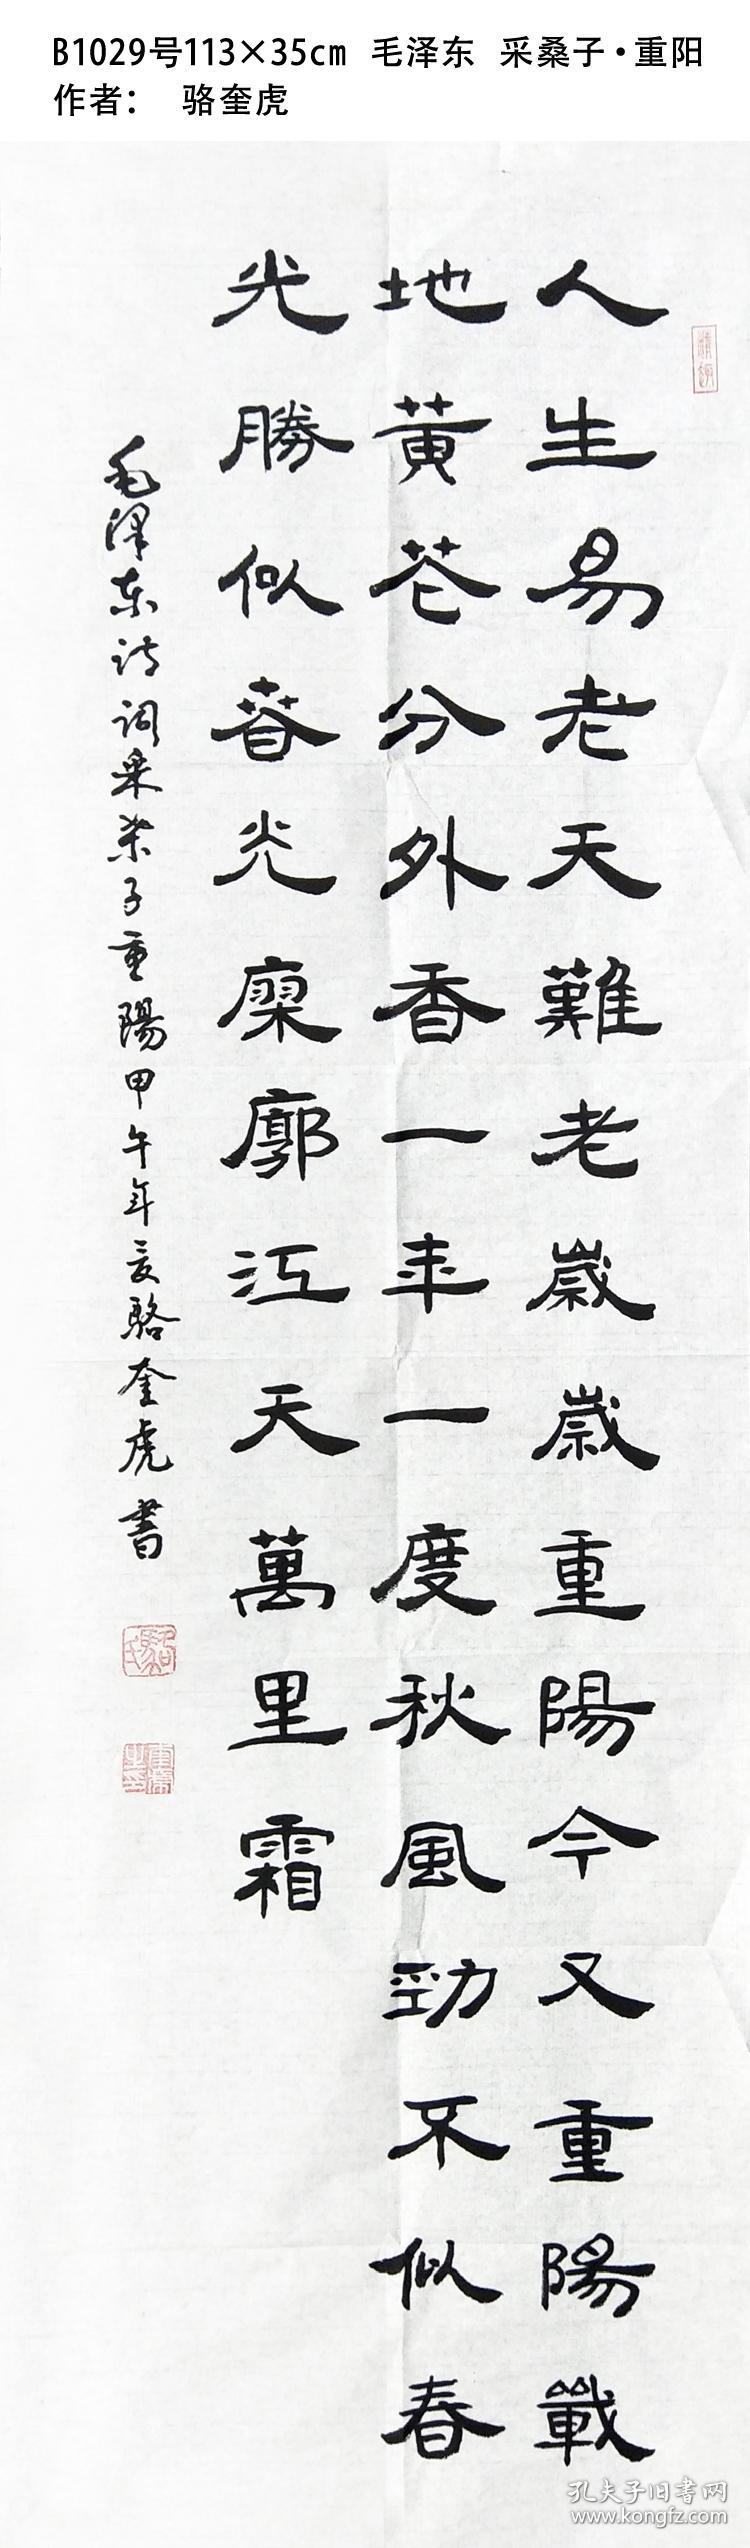 B1029号113×35cm 毛泽东 采桑子·重阳
作者： 骆奎虎
人生易老天難老歲歲重陽今又重陽戰
地黄花分外香一年一度秋風勁不似春
光勝似春光廖廓江天萬里霜
毛泽东诗词采桑子重陽甲午年夏駱奎虎書
孔夫子旧書网
www.kongfz.com